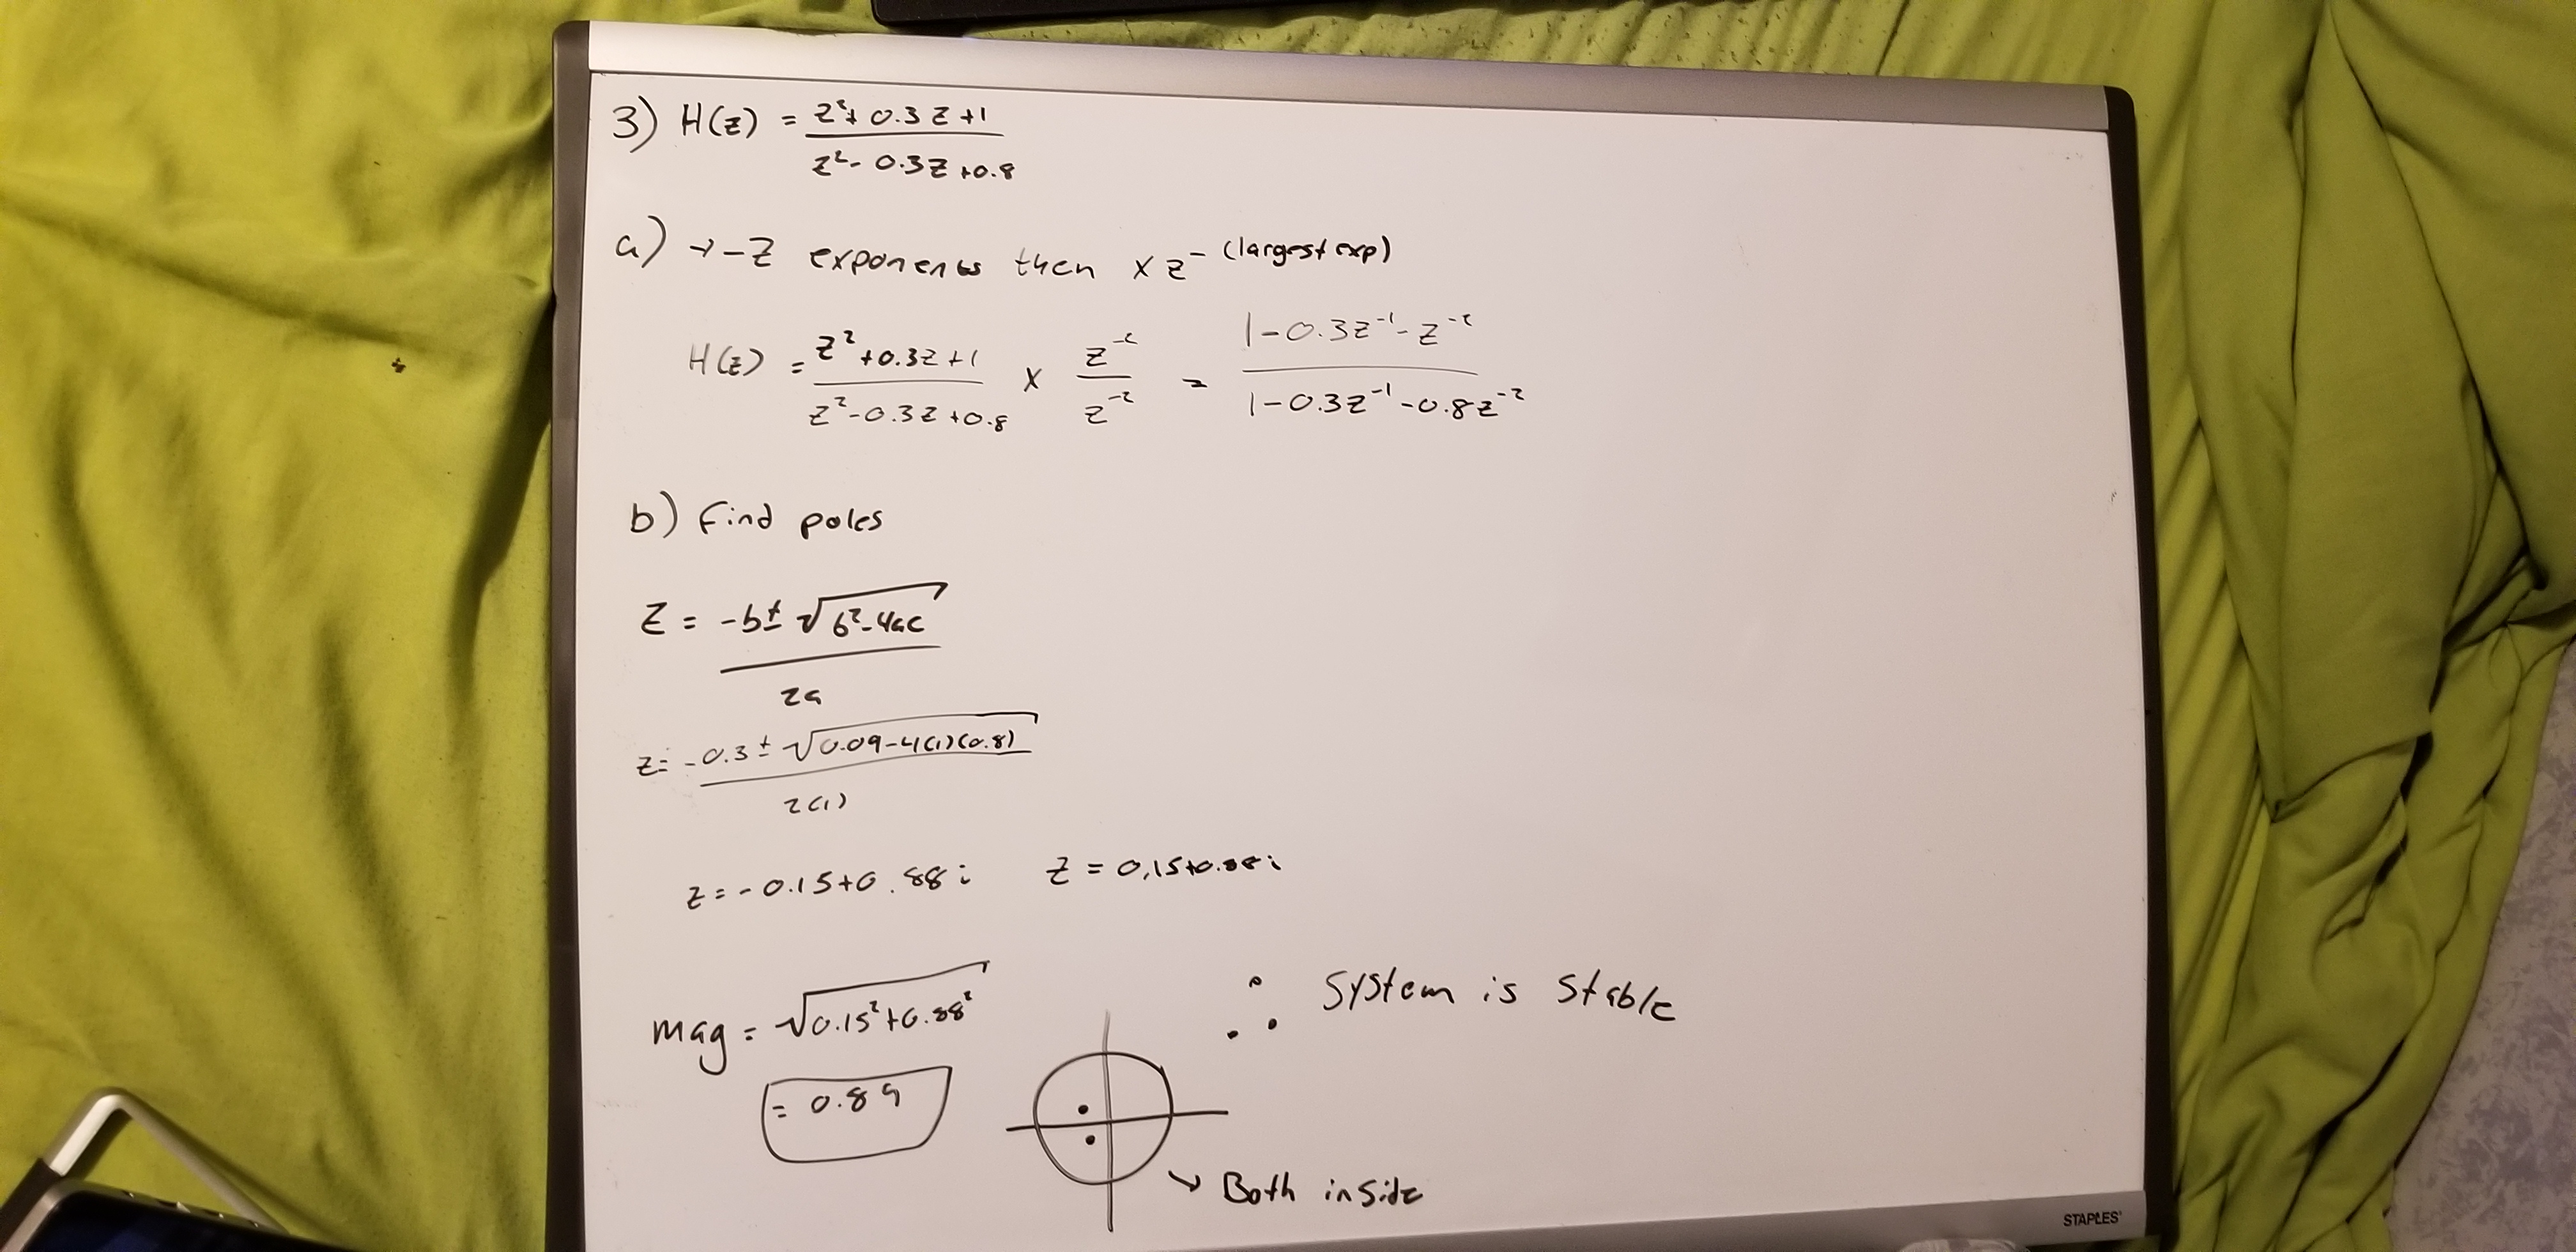 3) H(z) = z²+ 0.3z+1 / z²- 0.3z+0.8
a) → -z exponents then x z^-(largest exp)
H(z) = z²+0.3z+1 / z²-0.3z+0.8 x z⁻² / z⁻² = 1-0.3z⁻¹-z⁻² / 1-0.3z⁻¹-0.8z⁻²
b) find poles
z = -b±√b²-4ac / 2a
z= -0.3±√0.09-4(1)(0.8) / 2(1)
z=-0.15+0.88i z = 0.15+0.88i
mag = √0.15²+0.88²
= 0.89
∴ system is stable
→ Both inside
STAPLES